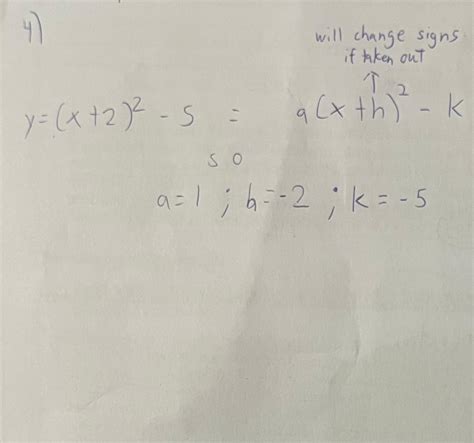 4)
will change signs
if taken out
↑
y=(x+2)² - 5 = a(x+h)² - k
so
a=1 ; h=-2 ; k=-5